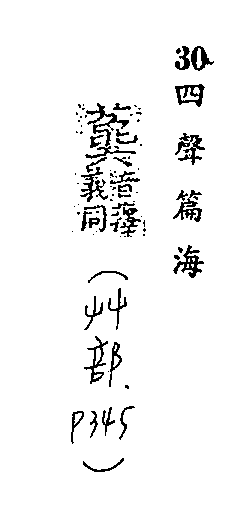 30四聲篇海
音
義同
(艸部.P345)